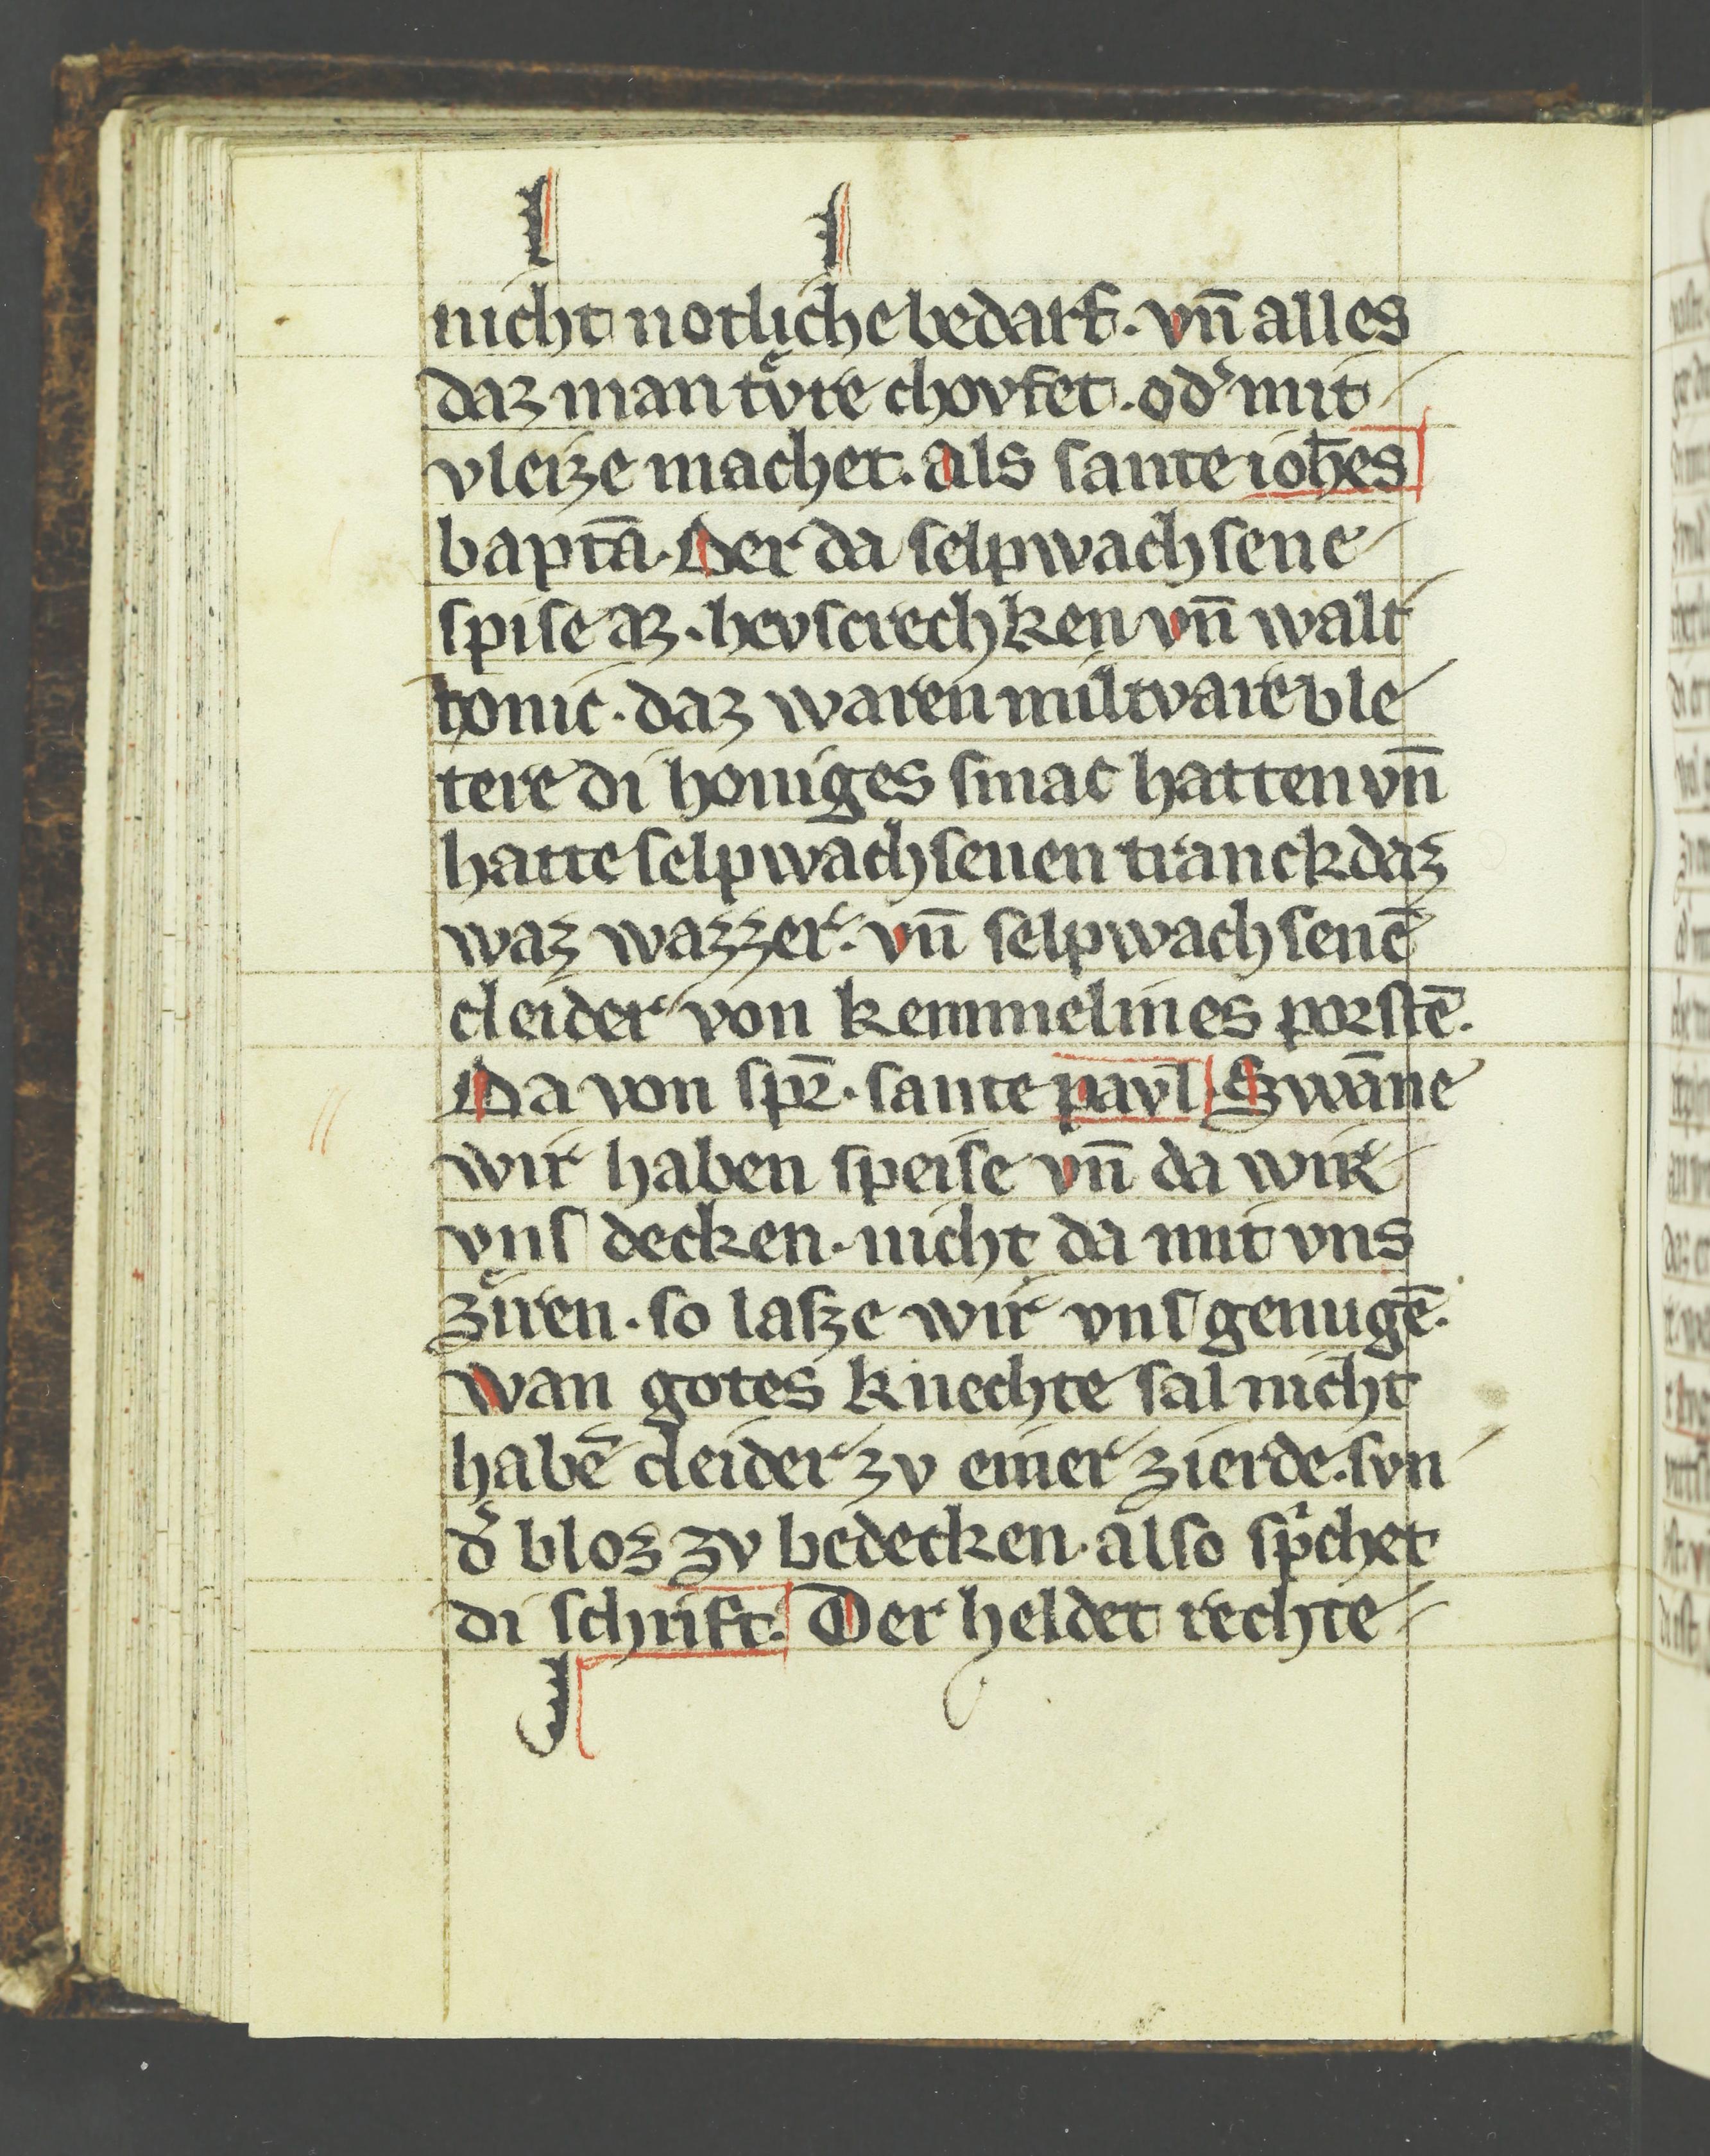 nicht notliche bedarf. vn̄ alles
daz man tv̊re chovfet. od' mit
vleize machet. als sante ioh̄es
baptā. Der da selpwachsene
spise az. hevscrechken vn̄ walt
honic. daz waren miltvare ble
tere di honiges smac hatten vn̄
hatte selpwachsenen tranck daz
waz wazzer. vn̄ selpwachsenē
cleider von kemmelines porstē.
Da von spr̄. sante pavl̄. Swāne
wir haben speise vn̄ da wir
vns decken. nicht da mit vns
ziren. so lasze wir vns genugē.
wan gotes knechte sal nicht
habē cleider zv einer zierde. svn
d' bloz zv bedecken. also sp'chet
di schrift. Der heldet rechte